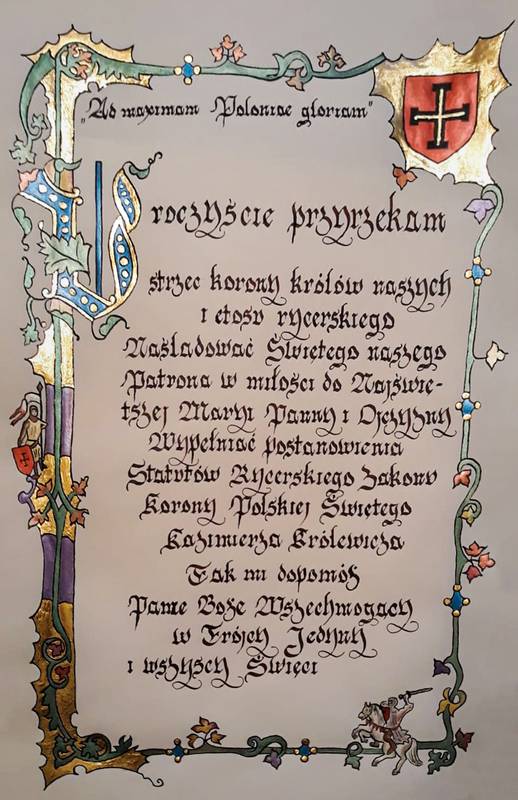 „Ad maximam Poloniae gloriam"
Uroczyście przyrzekam
strzec korony królów naszych
i etosu rycerskiego
Naśladować Świętego naszego
Patrona w miłości do Najświę-
tszej Maryi Panny i Ojczyzny
Wypełniać postanowienia
Statutów Rycerskiego Zakonu
Korony Polskiej Świętego
Kazimierza Królewicza
Tak mi dopomóż
Panie Boże Wszechmogący
w Trójcy Jedyny
i wszyscy Święci